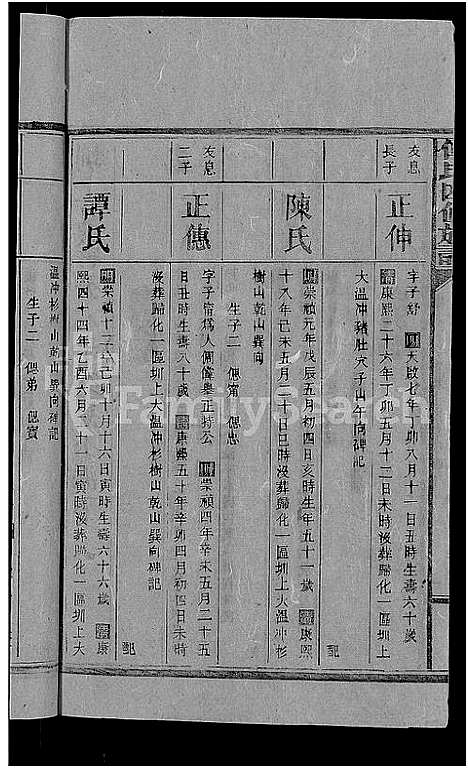 友息
長子
正伸
字子舒 明天啟七年丁卯八月十二日丑時生壽六十歲
清康熙二十六年丁卯五月十二日未時沒葬歸化一區圳上
大溫冲豬肚穴子山午向碑記
陳氏
明崇禎元年戊辰五月初四日亥時生年五十一歲 清康熙
十八年己未五月二十日巳時沒葬歸化一區圳上大溫冲杉
樹山乾山巽向
記
生子二 偲甯 偲忠
友息
二子
正傳
字子 為人倜儻舉正特公 明崇禎四年辛未五月二十五
日丑時生壽八十歲 清康熙五十年辛卯四月初四日未時
沒葬歸化一區圳上大溫冲杉樹山乾山巽向碑記
譚氏
明崇禎十二年己卯十月十六日寅時生壽六十六歲 清康
熙四十四年乙酉六月十一日寅時沒葬歸化一區圳上大
記
溫冲杉樹山乾山巽向碑記
生子二 偲弟 偲賓
FamilySearch